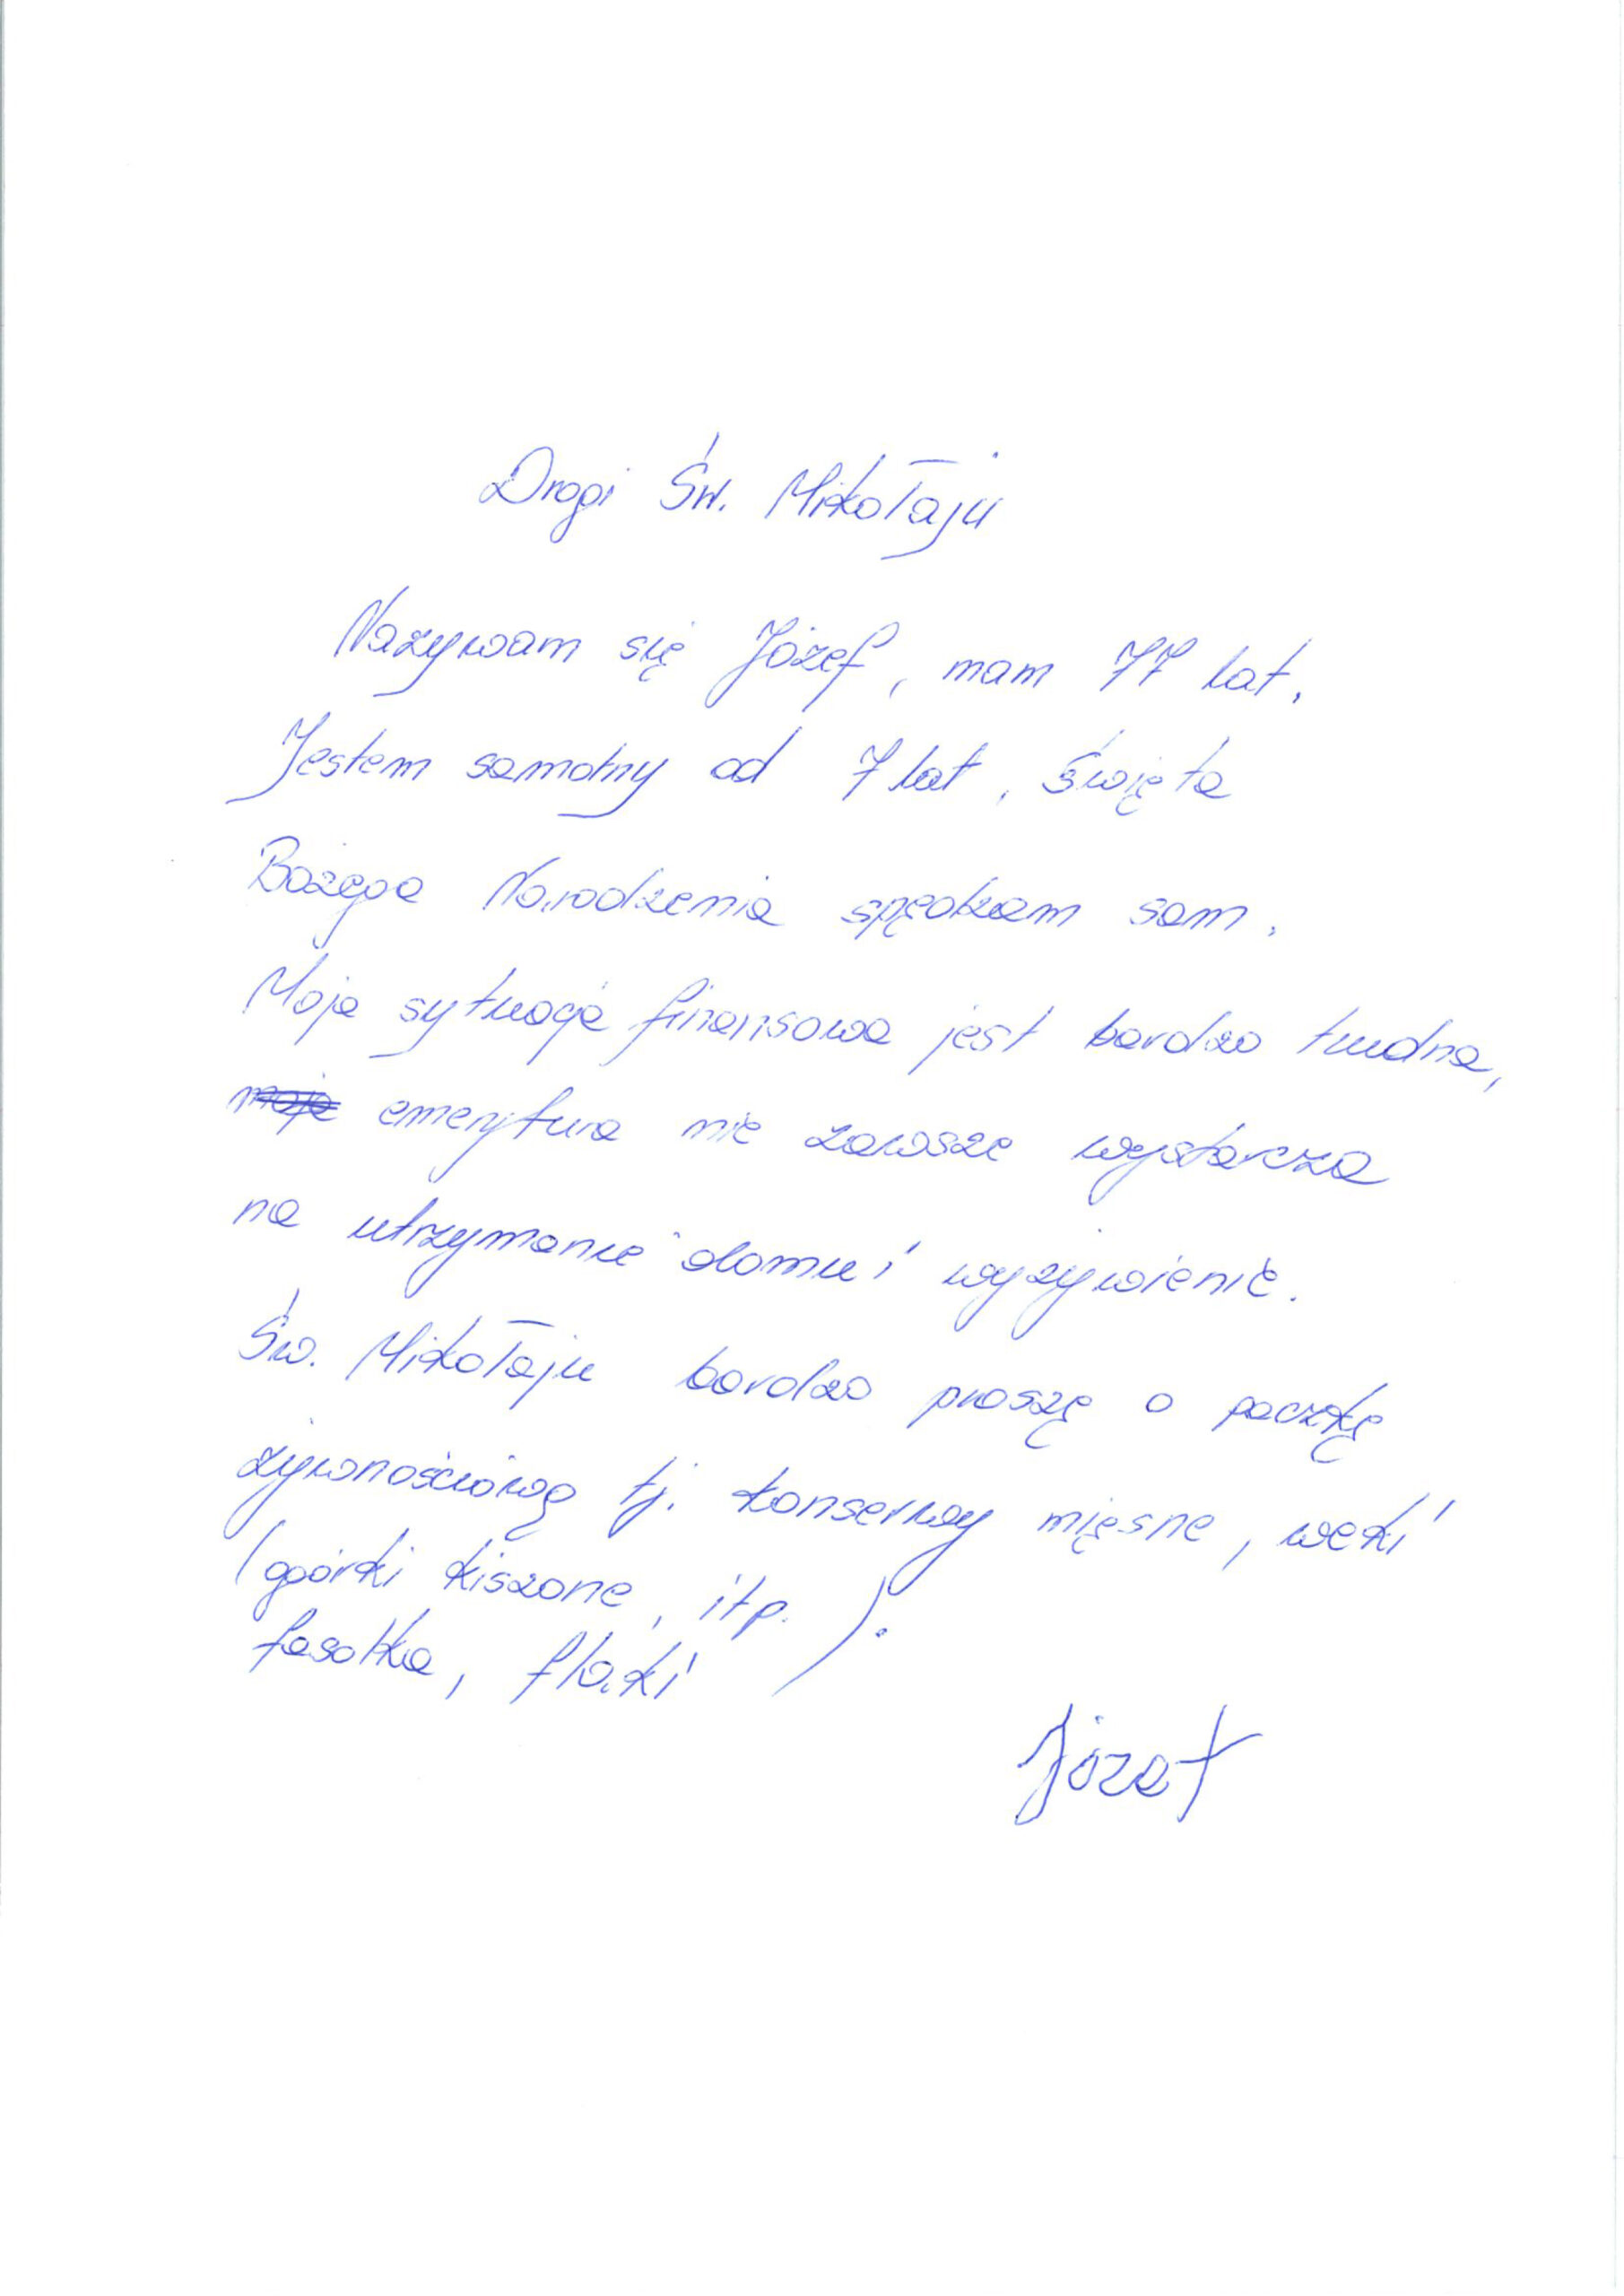 Drogi Św. Mikołaju
Nazywam się Józef, mam 77 lat.
Jestem samotny od 7 lat, święta
Bożego Narodzenia spędzam sam.
Moja sytuacja finansowa jest bardzo trudna,
moja emerytura nie zawsze wystarcza
na utrzymanie domu i wyżywienie.
Św. Mikołaju bardzo proszę o paczkę
żywnościową tj. konserwy mięsne, weki
(ogórki kiszone, itp.).
fasolka, flaki
Józef